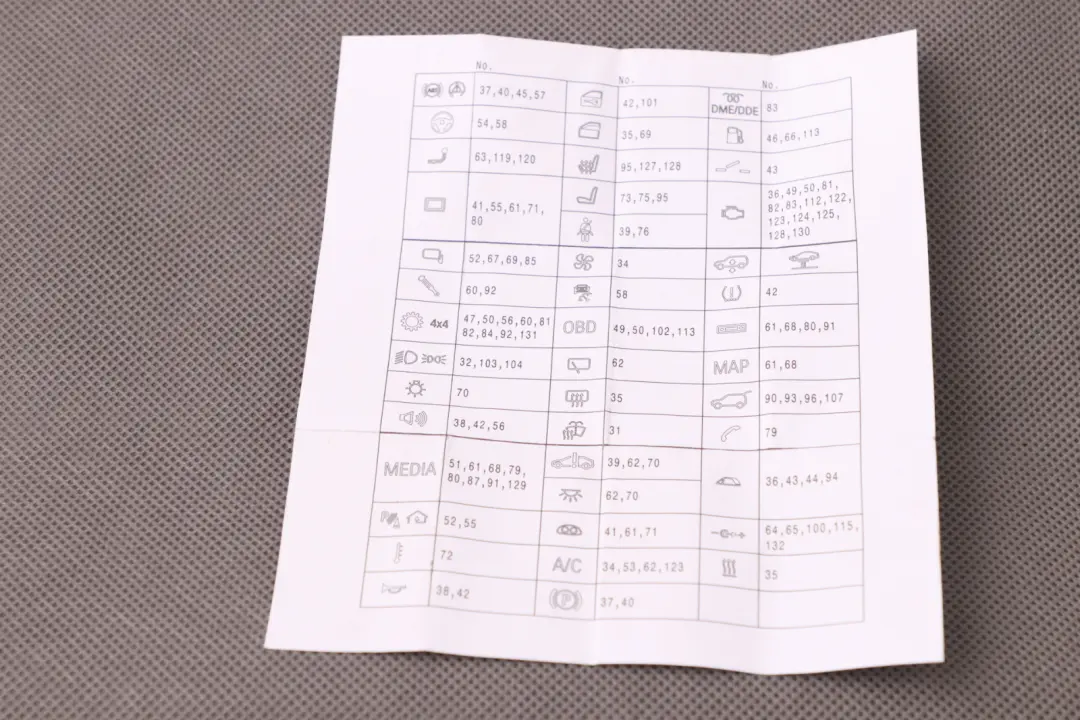 No. No. No.
ABS 37,40,45,57 42,101 DME/DDE 83
54,58 35,69 46,66,113
63,119,120 95,127,128 43
41,55,61,71,
80
73,75,95
39,76
36,49,50,81,
82,83,112,122,
123,124,125,
128,130
52,67,69,85 34
60,92 58 42
4x4 47,50,56,60,81
82,84,92,131
OBD 49,50,102,113 61,68,80,91
32,103,104 62 MAP 61,68
70 35 90,93,96,107
38,42,56 31 79
MEDIA 51,61,68,79,
80,87,91,129
39,62,70
62,70
36,43,44,94
52,55 41,61,71 64,65,100,115,
132
72 A/C 34,53,62,123 35
38,42 P 37,40